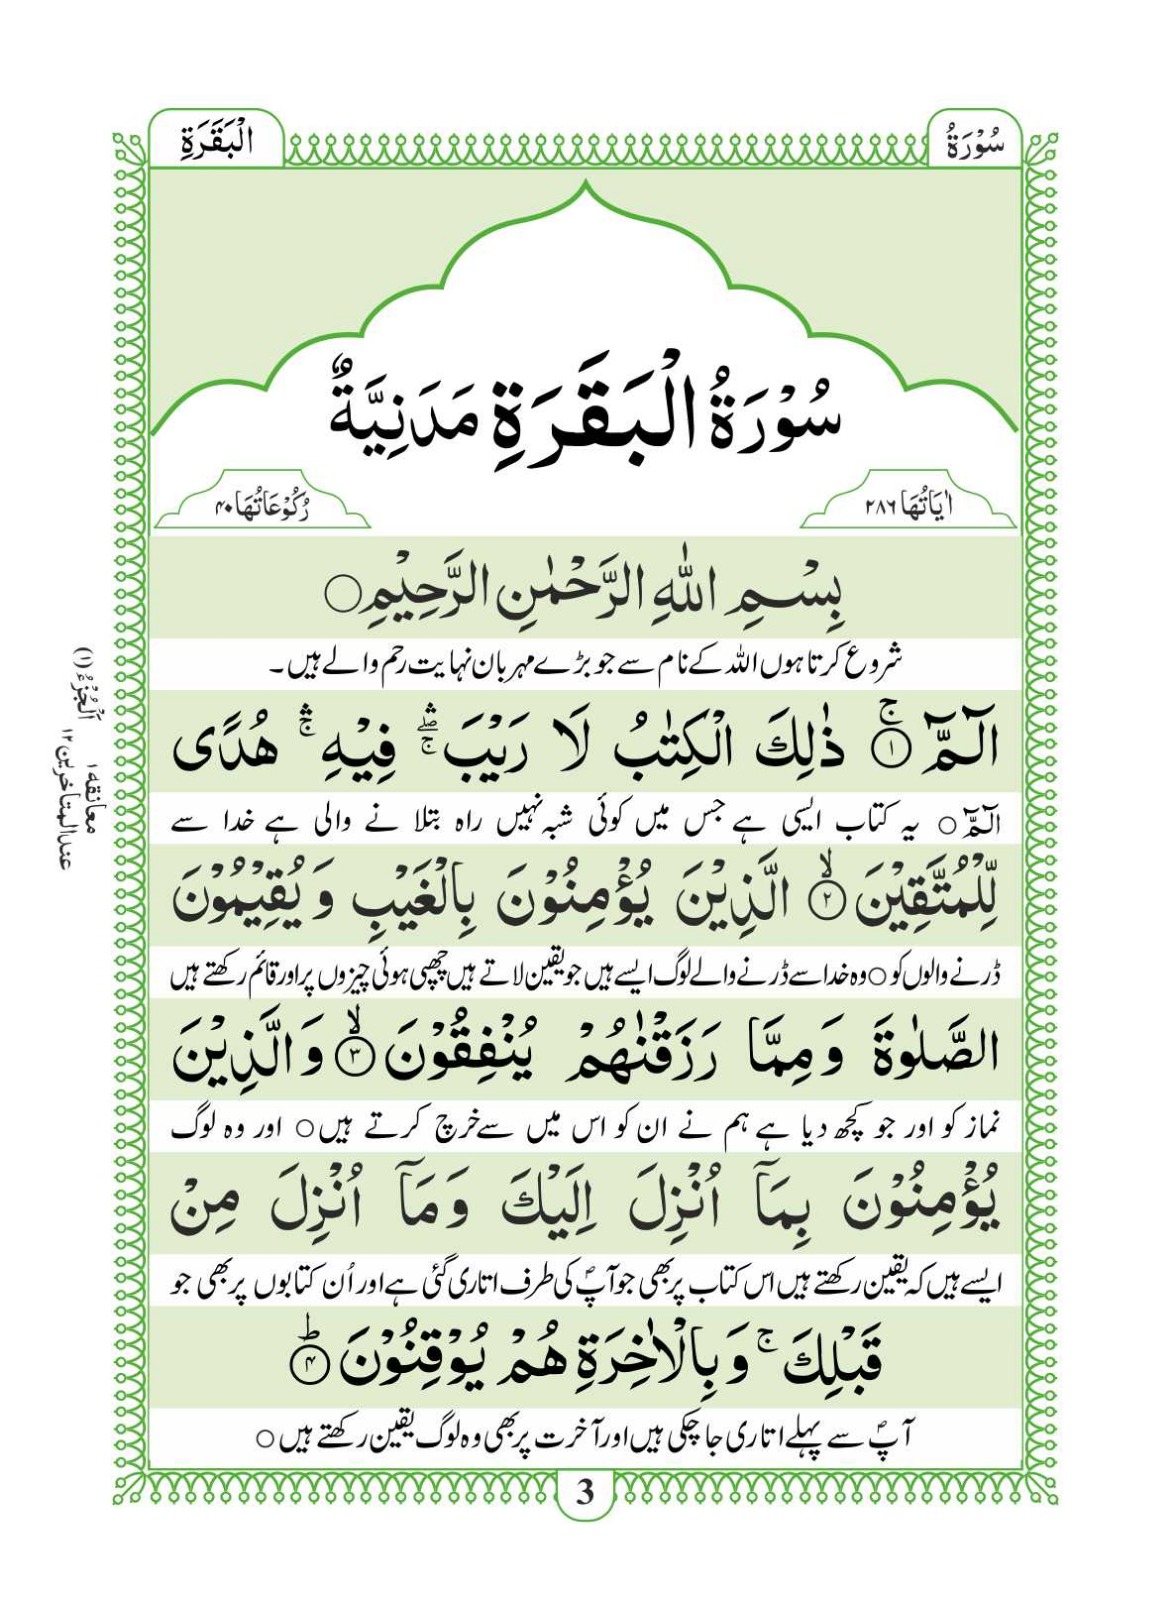 سُوْرَةُ
الْبَقَرَةِ
سُوْرَةُ الْبَقَرَةِ مَدَنِيَّةٌ
اٰيَاتُهَا ٢٨٦
رُكُوْعَاتُهَا ٤٠
بِسْمِ اللّٰهِ الرَّحْمٰنِ الرَّحِيْمِ○
شروع کرتا ہوں اللہ کے نام سے جو بڑے مہربان نہایت رحم والے ہیں۔
الٓمّٓ ۚ﴿١﴾ ذٰلِكَ الْكِتٰبُ لَا رَيْبَ ۛۖۚ فِيْهِ ۛۚ هُدًى
الٓمّٓ ○ یہ کتاب ایسی ہے جس میں کوئی شبہ نہیں راہ بتلا نے والی ہے خدا سے
لِّلْمُتَّقِيْنَ ۙ﴿٢﴾ الَّذِيْنَ يُؤْمِنُوْنَ بِالْغَيْبِ وَيُقِيْمُوْنَ
ڈرنے والوں کو ○ وہ خدا سے ڈرنے والے لوگ ایسے ہیں جو یقین لاتے ہیں چھپی ہوئی چیزوں پر اور قائم رکھتے ہیں
الصَّلٰوةَ وَمِمَّا رَزَقْنٰهُمْ يُنْفِقُوْنَ ۙ﴿٣﴾ وَالَّذِيْنَ
نماز کو اور جو کچھ دیا ہے ہم نے ان کو اس میں سے خرچ کرتے ہیں ○ اور وہ لوگ
يُؤْمِنُوْنَ بِمَآ اُنْزِلَ اِلَيْكَ وَمَآ اُنْزِلَ مِنْ
ایسے ہیں کہ یقین رکھتے ہیں اس کتاب پر بھی جو آپؐ کی طرف اتاری گئی ہے اور اُن کتابوں پر بھی جو
قَبْلِكَ ۚ وَبِالْاٰخِرَةِ هُمْ يُوْقِنُوْنَ ؕ﴿٤﴾
آپؐ سے پہلے اتاری جا چکی ہیں اور آخرت پر بھی وہ لوگ یقین رکھتے ہیں ○
اَلْجُزْءُ (١)
معانقه ١
عند المتاخرين ١٢
3